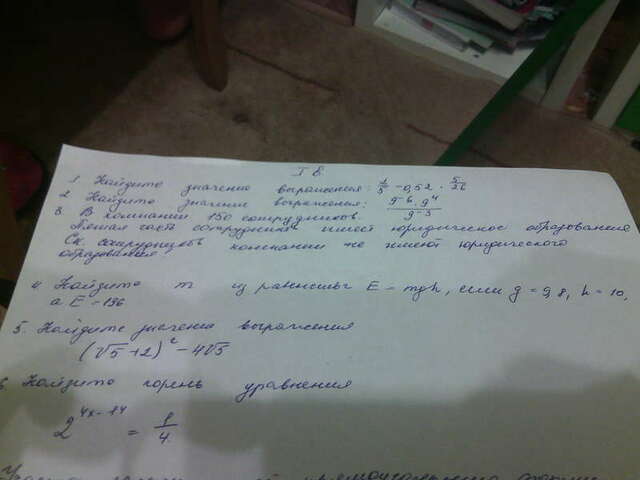 I в
1 Найдите значение выражения: 1/5 - 0,52 · 5/26
2 Найдите значение выражения: 9^-6 · 9^4 / 9^-3
3. В компании 150 сотрудников.
Пятая часть сотрудников имеет юридическое образование
Ск. сотрудников компании не имеют юридического
образования
4 Найдите m из равенства E = mgh, если g = 9,8, h = 10,
а E = 196
5. Найдите значение выражения
(√5 + 2)² - 4√5
6. Найдите корень уравнения
2^4x-14 = 1/4